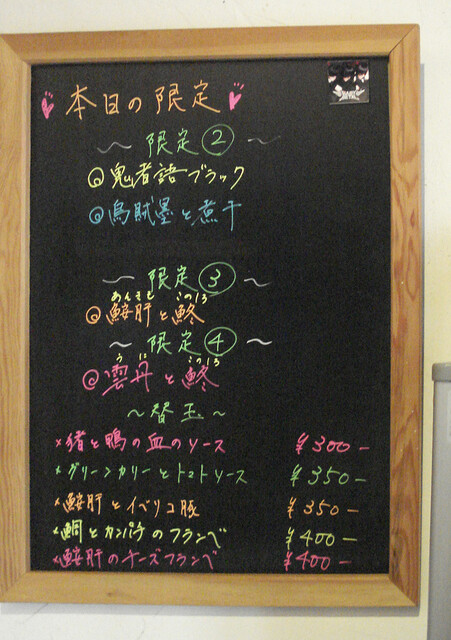 本日の限定
〜 限定② 〜
◎鬼者語ブラック
◎烏賊墨と煮干
〜 限定③ 〜
あんきも このしろ
◎鮟肝と鮗
〜 限定④ 〜
うに このしろ
◎雲丹と鮗
〜替玉〜
×猪と鴨の血のソース ¥300-
×グリーンカリーとトマトソース ¥350-
×鮟肝とイベリコ豚 ¥350-
×鯛とカンパチのフランベ ¥400-
×鮟肝のチーズフランベ ¥400-